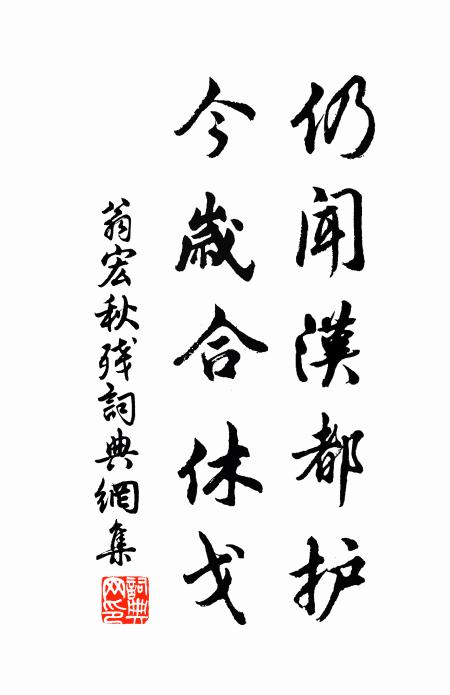 仍闻漢都护
今歲合休戈
翁宏秋残詞典網集
詞典网印